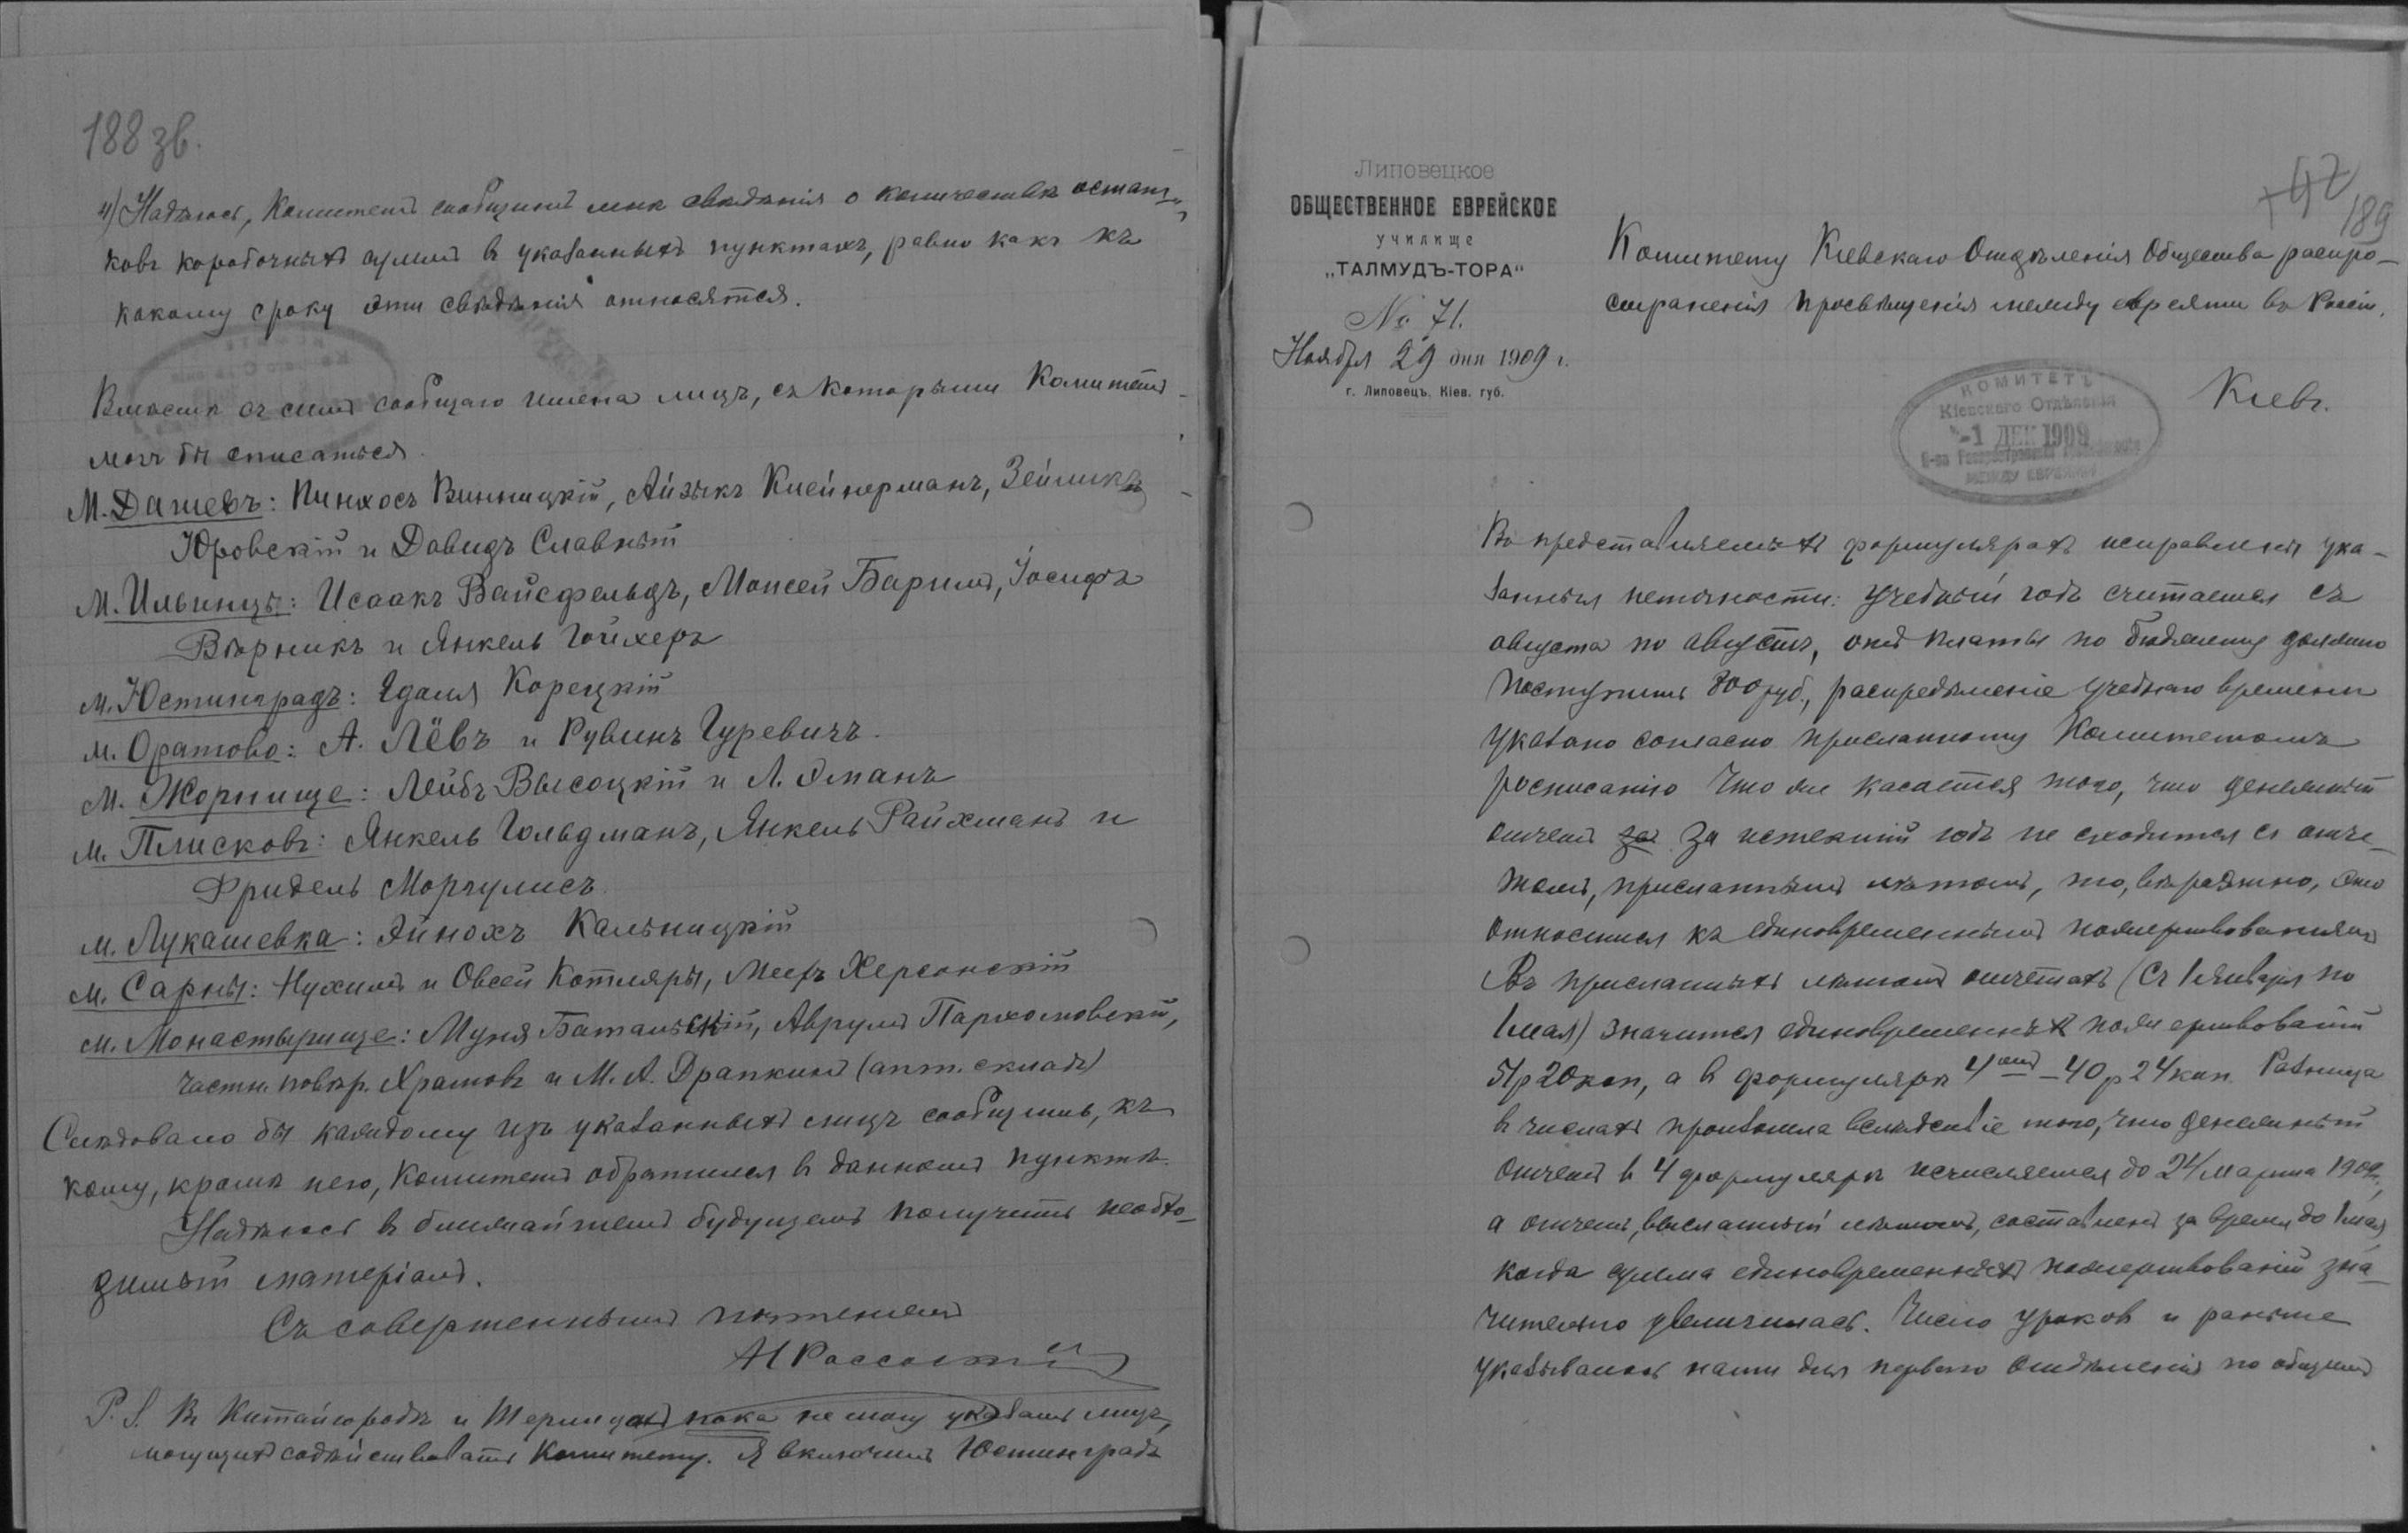 188 зв.
4) Надѣюсь, Комитетъ сообщитъ мнѣ свѣдѣнія о количествѣ остат-
ковъ коробочныхъ суммъ въ указанныхъ пунктахъ, равно какъ къ
какому сроку эти свѣдѣнія относятся.
Вмѣстѣ съ симъ сообщаю имена лицъ, съ которыми Комитетъ
могъ бы списаться.
М. Дашевъ: Пинхосъ Винницкій, Айзыкъ Клейнерманъ, Зейликъ
Юровскій и Давидъ Славный
М. Ильинцы: Исаакъ Вайсфельдъ, Моисей Баримъ, Іосифъ
Вѣрникъ и Янкель Гойхеръ
м. Юстинградъ: Гдалія Корецкій
м. Оратово: А. Лёвъ и Рувинъ Гуревичъ.
М. Жорнище: Лейбъ Высоцкій и Л. Эманъ
м. Плисковъ: Янкель Гольдманъ, Янкель Райхманъ и
Фридель Моргулисъ.
м. Лукашевка: Эйнохъ Кальницкій
м. Сарны: Нухимъ и Овсей Котляры, Мееръ Херсонскій
м. Монастырище: Муня Батальскій, Аврумъ Пархомовскій,
частн. повѣр. Храмовъ и М. А. Драпкинъ (апт. складъ)
Слѣдовало бы каждому изъ указанныхъ лицъ сообщить, къ
кому, кромѣ него, Комитетъ обратился въ данномъ пунктѣ.
Надѣюсь въ ближайшемъ будущемъ получить необхо-
димый матеріалъ.
Съ совершеннымъ почтеніемъ
P. S. Въ Китайгородѣ и пока не могу указать лицъ,
могущихъ содѣйствовать Комитету. Я включилъ Юстинградъ
189
Липовецкое
ОБЩЕСТВЕННОЕ ЕВРЕЙСКОЕ
училище
„ТАЛМУДЪ-ТОРА“
№ 71.
Ноября 29 дня 1909 г.
г. Липовецъ, Кіев. губ.
Комитету Кіевскаго Отдѣленія Общества распро-
страненія просвѣщенія между евреями въ Россіи.
Кіевъ.
КОМИТЕТЪ
Кіевскаго Отдѣленія
-1 ДЕК 1909
МЕЖДУ ЕВРЕЯМИ
Въ представляемыхъ формулярахъ исправлены ука-
занныя неточности: учебный годъ считается съ
августа по августъ, отъ платы по бюджету должно
поступить 800 руб., распредѣленіе учебнаго времени
указано согласно присланному Комитетомъ
росписанію. Что же касается того, что денежный
отчетъ за истекшій годъ не сходится съ отче-
томъ, присланнымъ лѣтомъ, то, вѣроятно, это
относится къ единовременнымъ пожертвованіямъ
Въ присланныхъ лѣтомъ отчетахъ (съ 1 января по
1 мая) значится единовременныхъ пожертвованій
51 р 20 коп, а въ формулярѣ 4омъ – 40 р 24 коп. Разница
въ числахъ произошла вслѣдствіе того, что денежный
отчетъ въ 4 формулярѣ исчисляется до 24 марта 1909,
а отчетъ, высланный лѣтомъ, составленъ за время до 1 мая,
когда сумма единовременныхъ пожертвованій зна-
чительно увеличилась. Число уроковъ и раньше
указывалось нами для перваго отдѣленія по общимъ